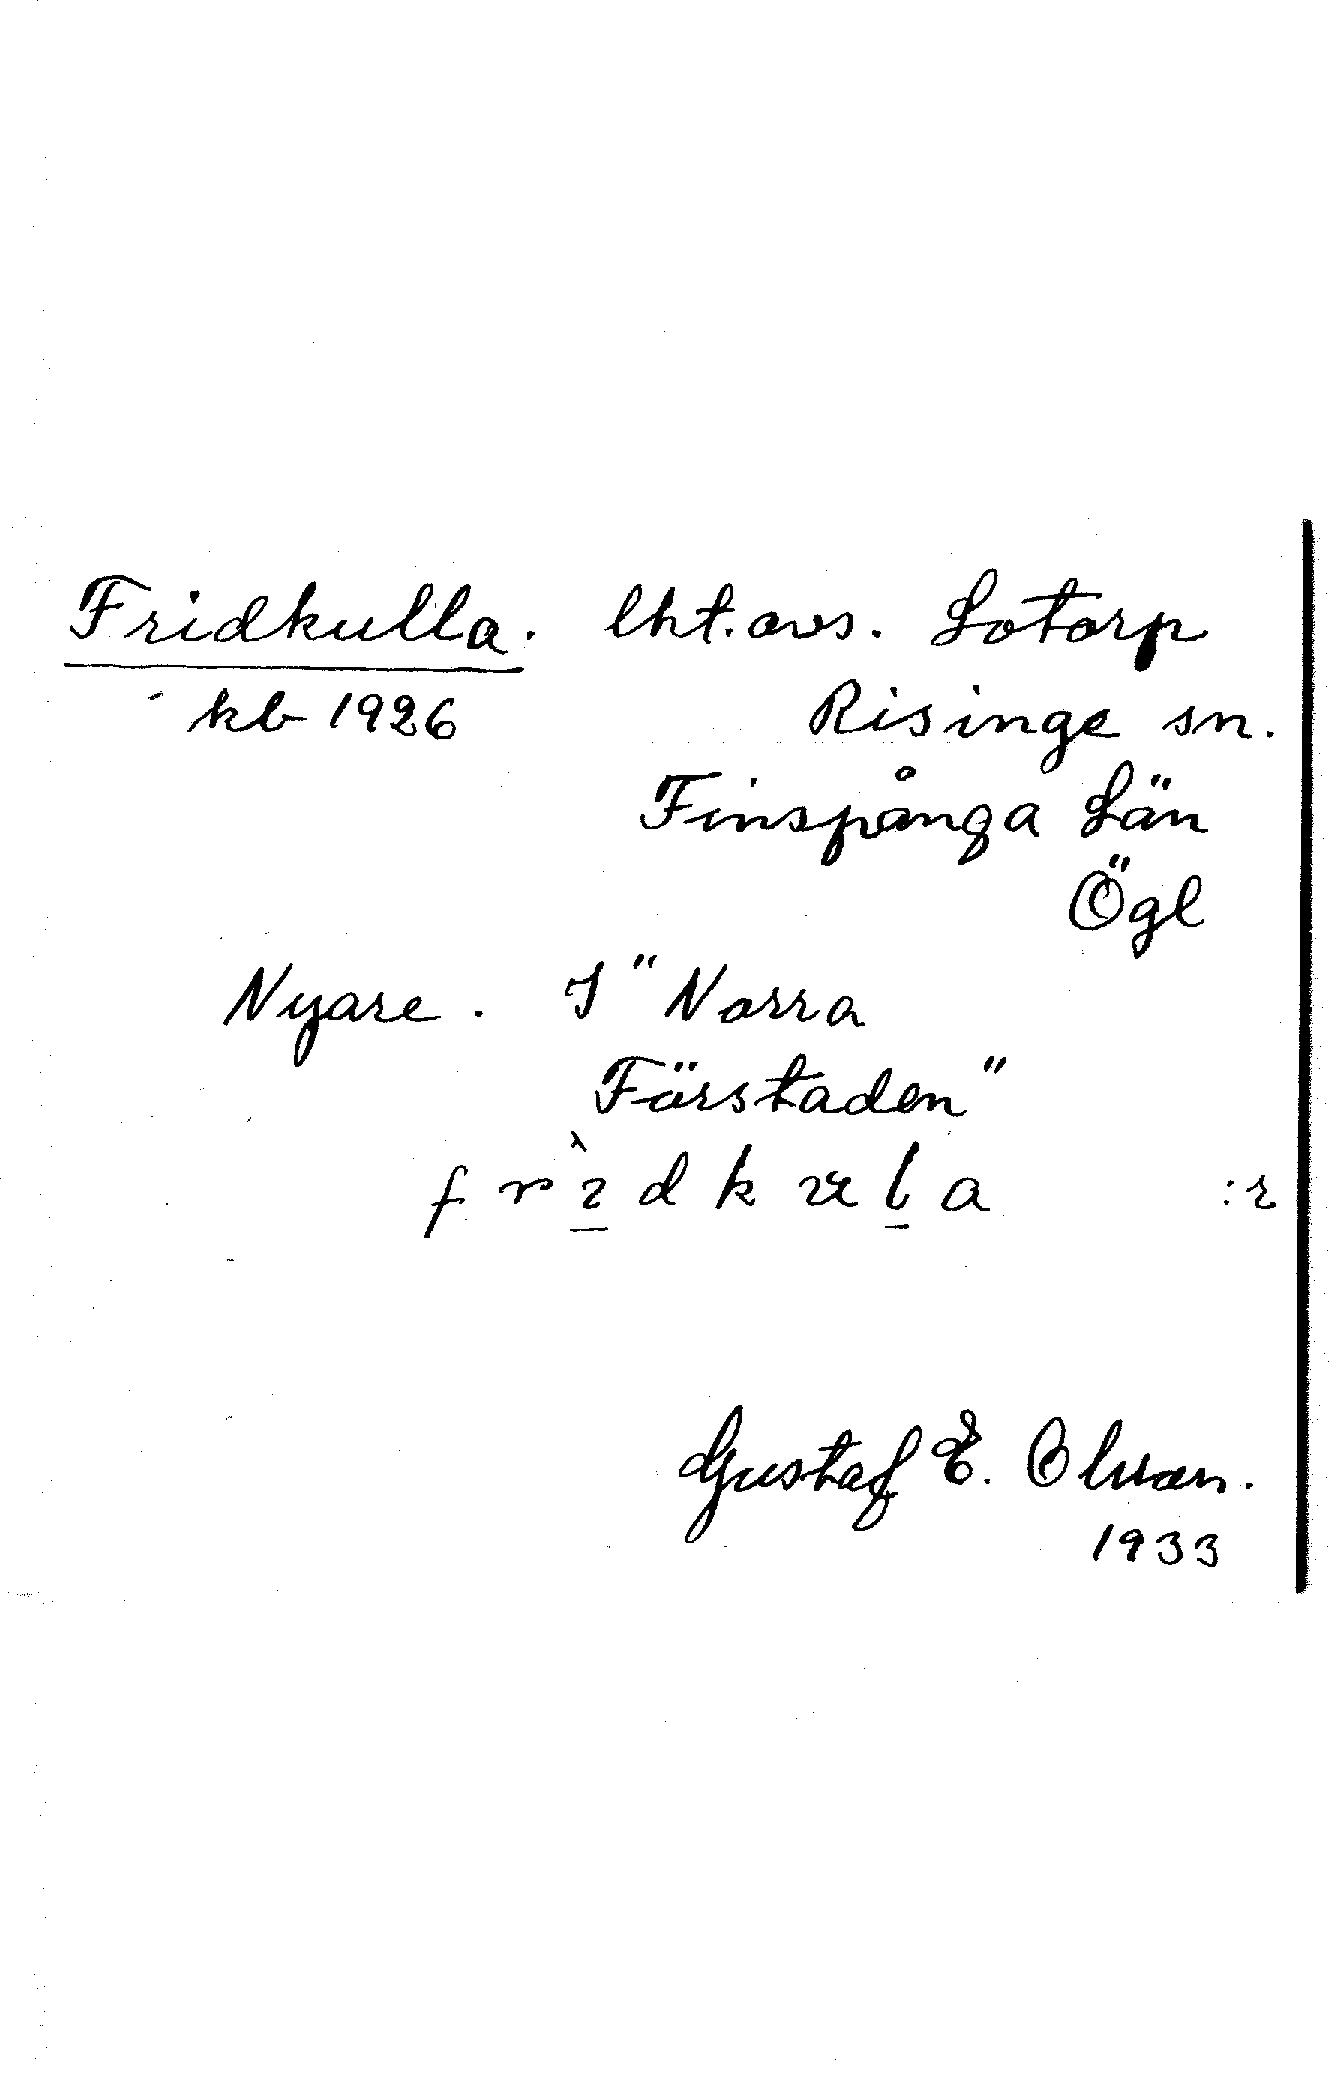 Fridkulla. lht.avs. Lotorp
kb 1926 Risinge sn.
Finspånga Län
Ögl
Nyare. I "Norra
Förstaden"
frìdkula :r
Gustaf E. Olsson.
1933